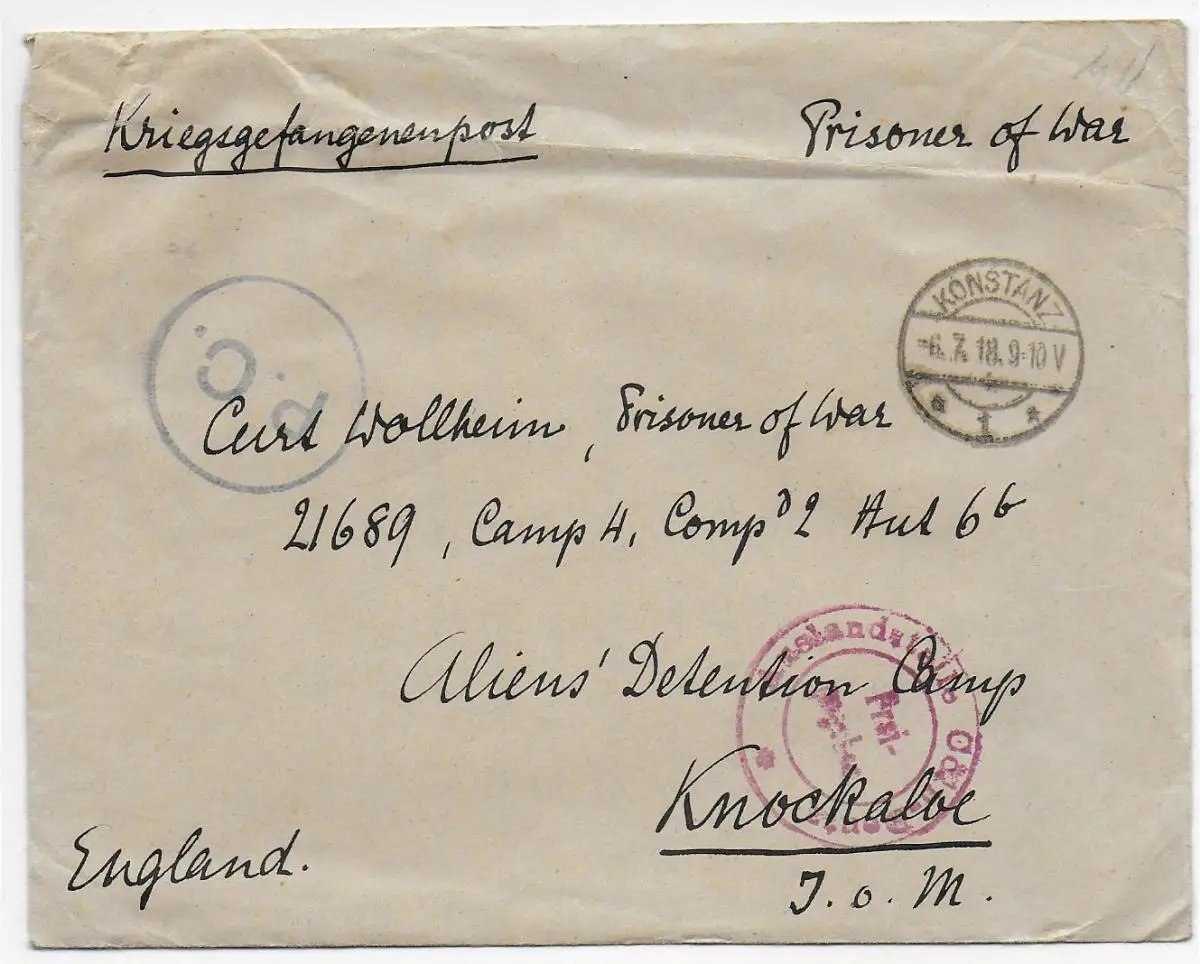 Kriegsgefangenenpost Prisoner of War
KONSTANZ
-6.7.18.9-10V
* 1 *
P.C.
Curt Wollheim, Prisoner of War
21689, Camp 4, Compd 2 Hut 6b
Aliens' Detention Camp
Knockaloe
I.o.M.
England.